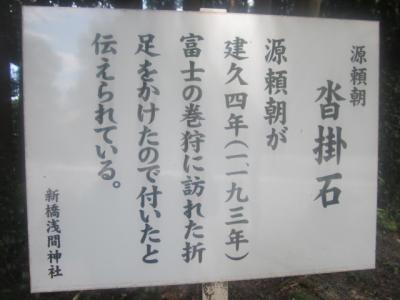 源頼朝
沓掛石
源頼朝が
建久四年(一一九三年)
富士の巻狩に訪れた折
足をかけたので付いたと
伝えられている。
新橋浅間神社